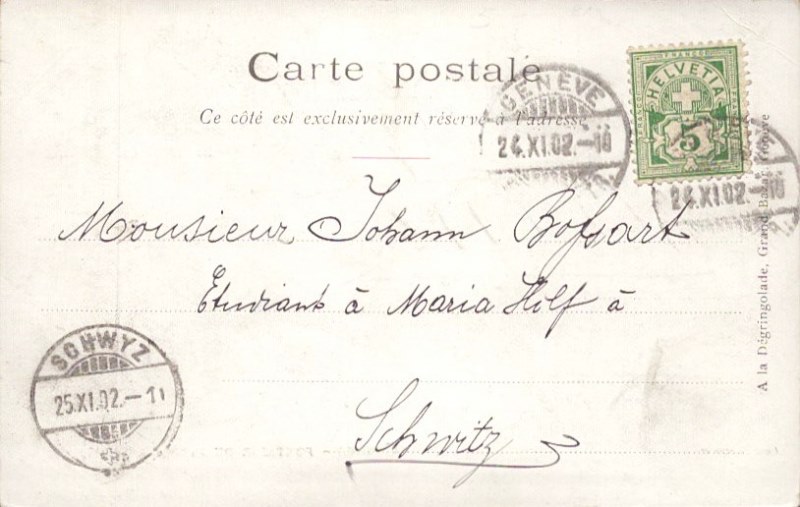 Carte postale
Ce côté est exclusivement réservé à l'adresse
GENÈVE
24.XI.02.-10
HELVETIA
FRANCO
5
24.XI.02.-10
Monsieur Johann Bossart
Etudiant à Maria Hilf à
Schwitz
SCHWYZ
25.XI.02.-11
A la Dégringolade, Grand Bazar, Genève